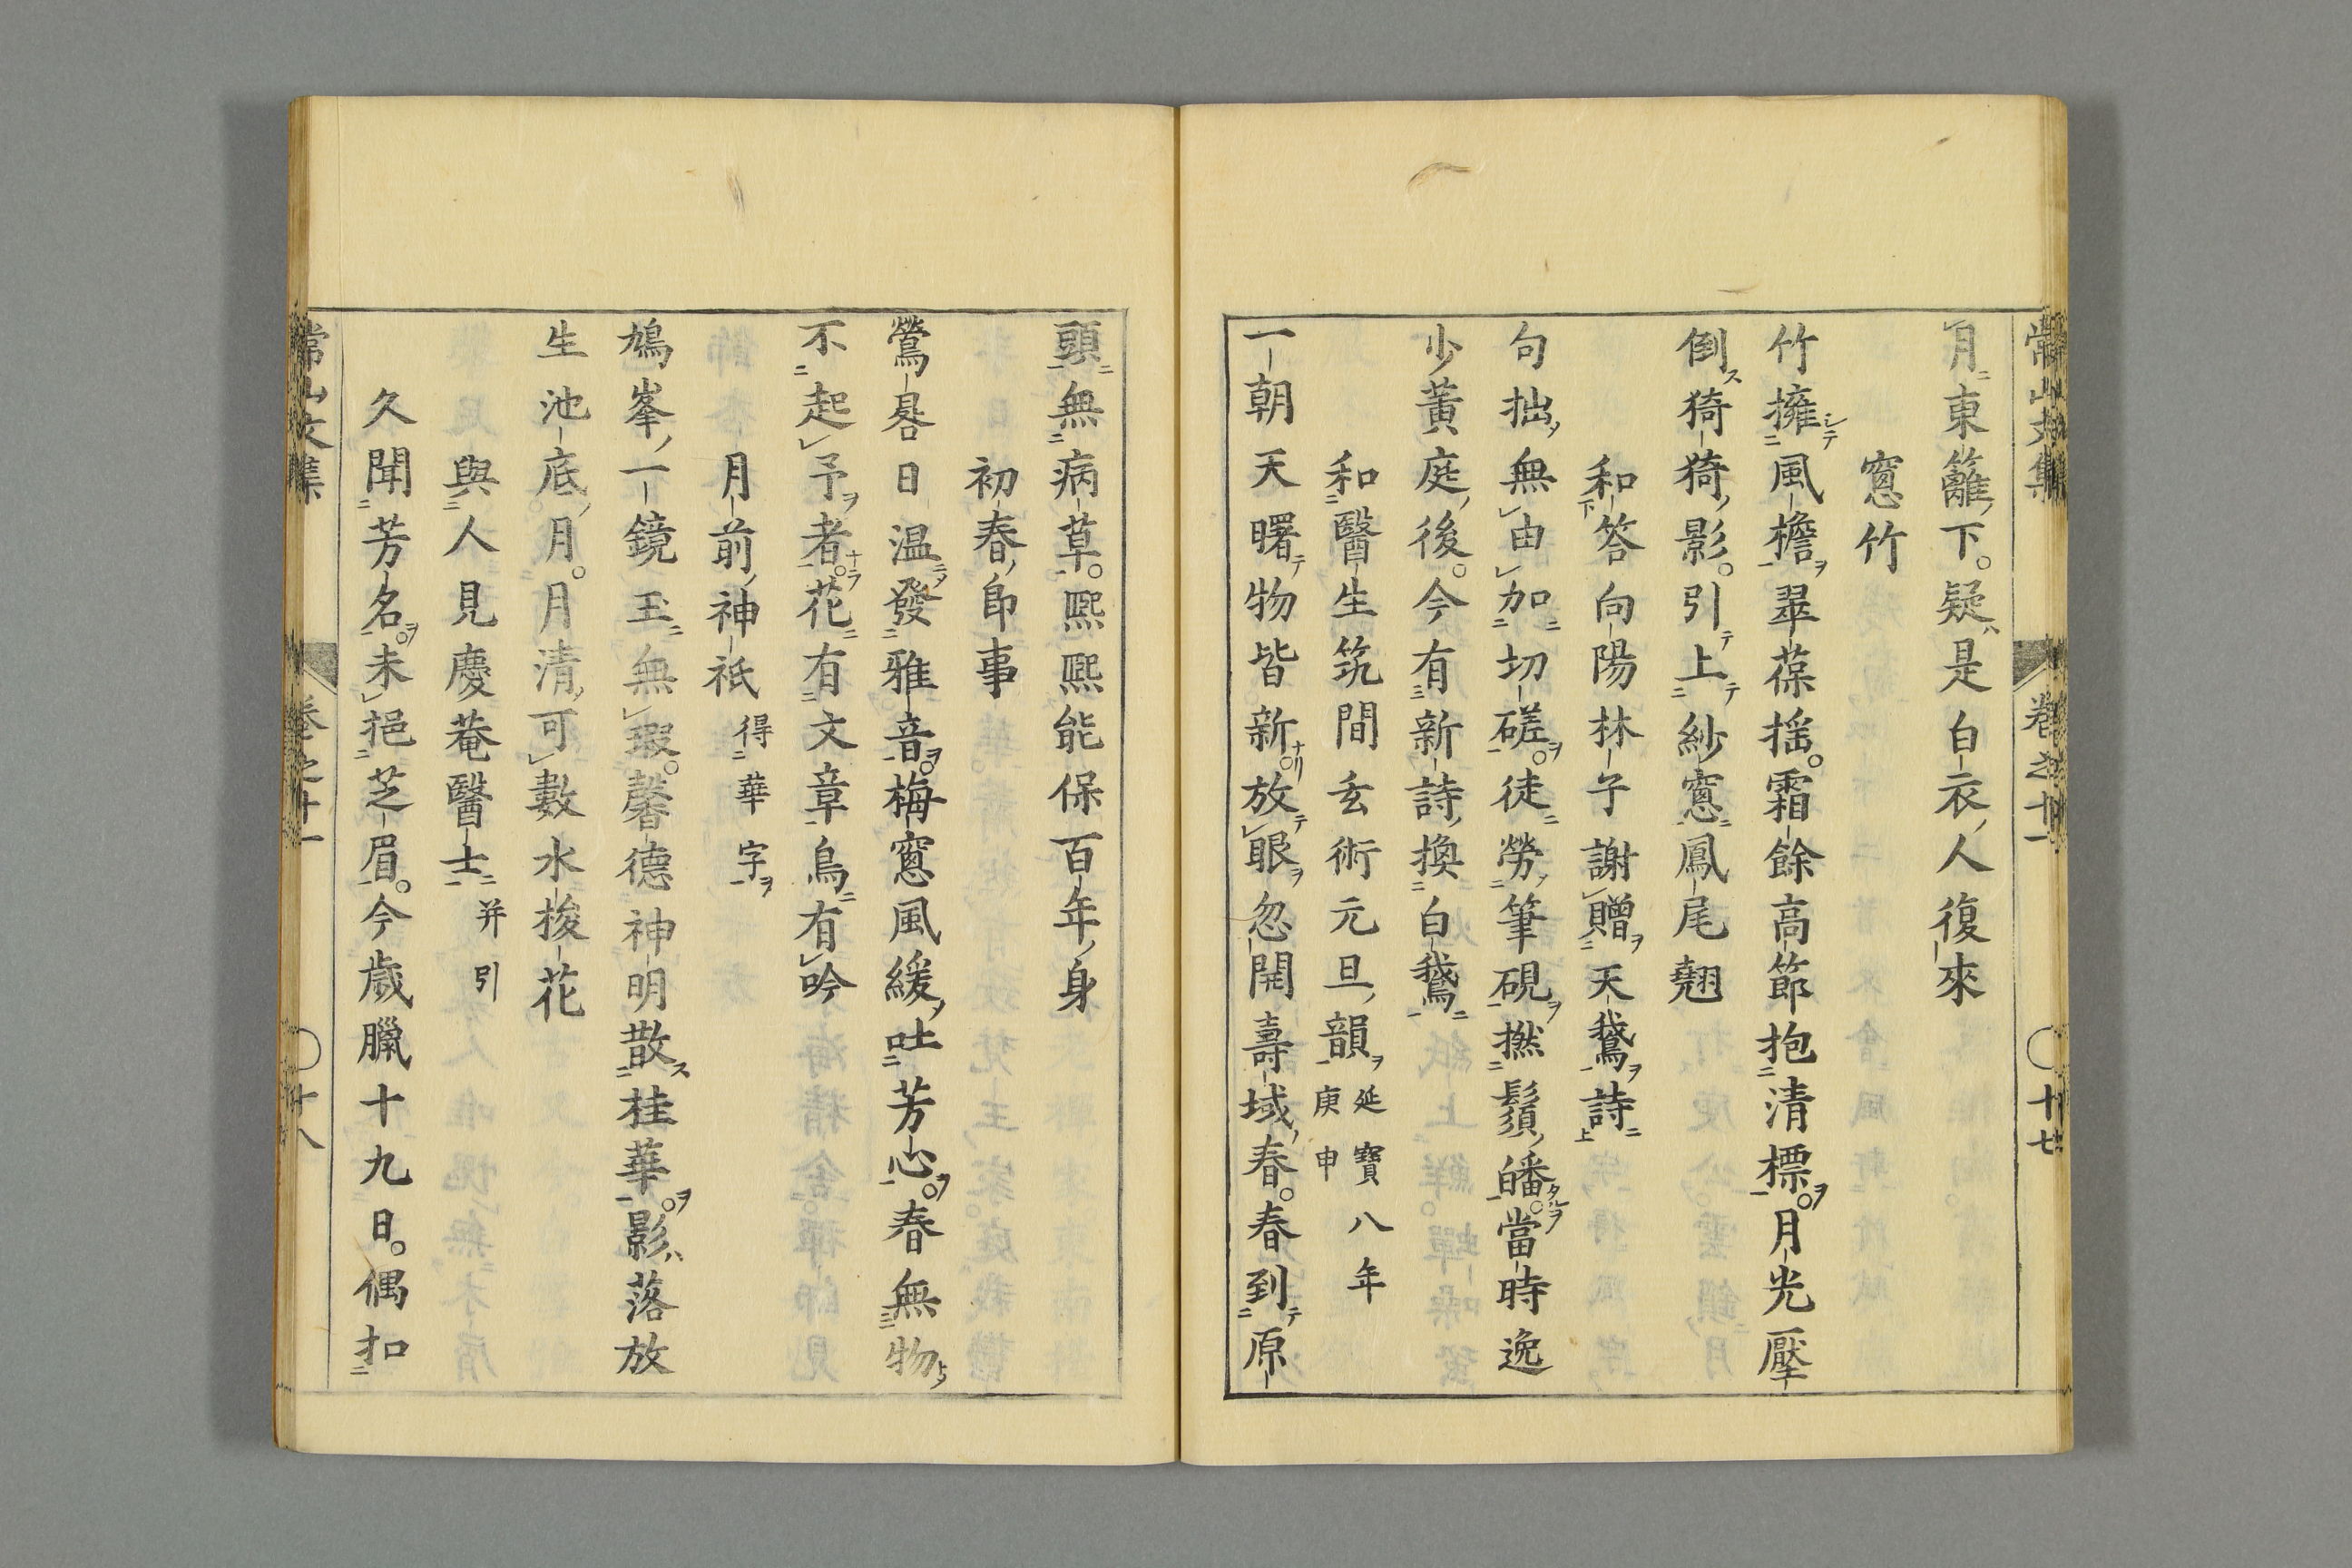 常山文集 卷之十一 〇十七
月東籬下。疑是白衣人復來
窻竹
竹擁風檐翠葆揺。霜餘高節抱清標。月光壓
倒猗猗影。引上紗窻鳳尾翹
和答向陽林子謝贈天鵞詩
句拙無由加切磋。徒勞筆硯撚鬚皤。當時逸
少黃庭後。今有新詩換白鵞
和醫生筑間玄術元旦韻 延寶八年庚申
一朝天曙物皆新。放眼忽開壽域春。春到原
頭無病草。熙熙能保百年身
初春即事
鶯㫪日温發雅音。梅窻風緩吐芳心。春無物
不起予者。花有文章鳥有吟
月前神祇 得華字
鳩峯一鏡玉無瑕。馨德神明散桂華。影落放
生池底月。月清可數水梭花
與人見慶菴醫士 并引
久聞芳名。未挹芝眉。今歲臘十九日。偶扣
常山文集 卷之十一 〇十八